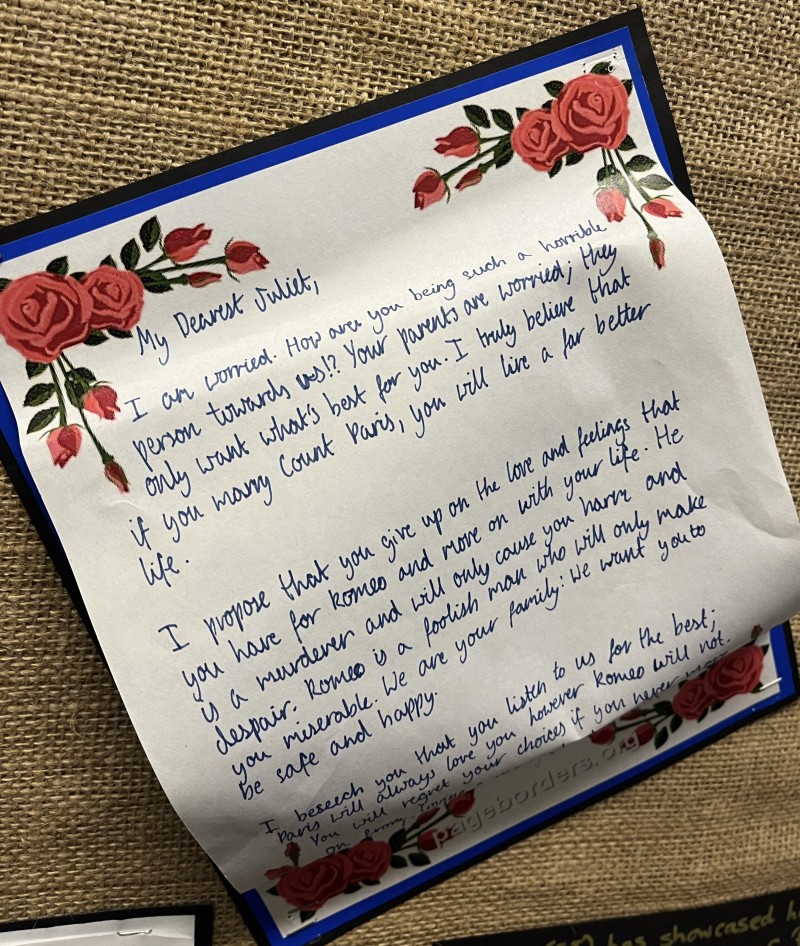 My Dearest Juliet,
I am worried. How are you being such a horrible
person towards us!? Your parents are worried; they
only want what's best for you. I truly believe that
if you marry Count Paris, you will live a far better
life.
I propose that you give up on the love and feelings that
you have for Romeo and move on with your life. He
is a murderer and will only cause you harm and
despair. Romeo is a foolish man who will only make
you miserable. We are your family: we want you to
be safe and happy.
I beseech you that you listen to us for the best;
Paris will always love you however Romeo will not.
You will regret your choices if you never
on
pageborders.org
has showcased